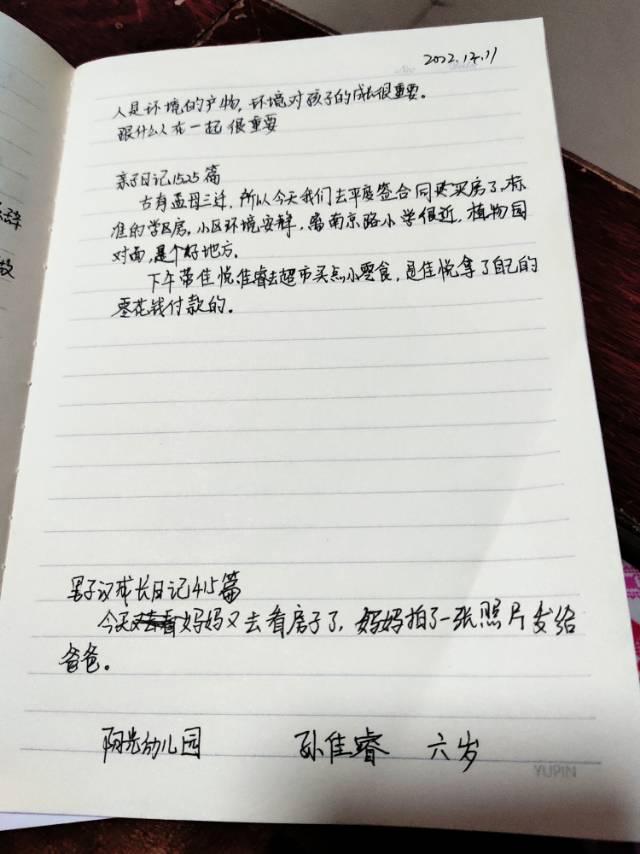 2022.12.11
人是环境的产物，环境对孩子的成长很重要。
跟什么人在一起很重要
亲子日记1525篇
古有孟母三迁，所以今天我们去平度签合同买房了，标
准的学区房，小区环境安静，离南京路小学很近，植物园
对面，是个好地方。
下午带佳悦佳睿去超市买点小零食，是佳悦拿了自己的
零花钱付款的。
男子汉成长日记415篇
今天妈妈又去看房子了，妈妈拍了一张照片发给
爸爸。
阳光幼儿园 孙佳睿 六岁
YUPIN